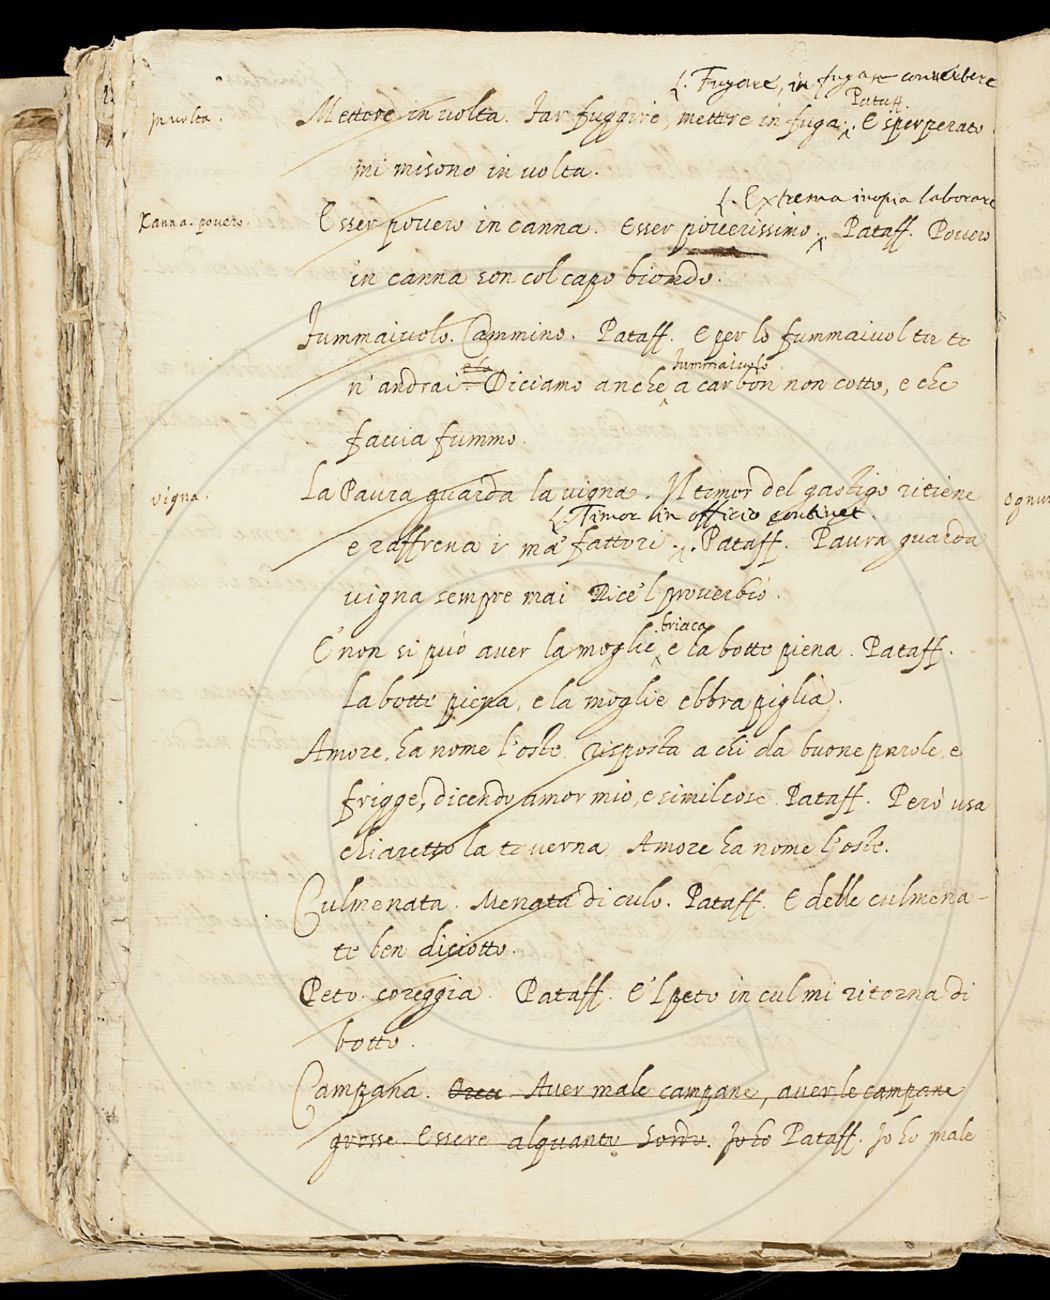 L. Fugare, in fugam convertere
in volta.
Mettere in volta. Far fuggire, mettere in fuga. Pataff. E sperperato
mi misono in volta.
L. Extrema inopia laborare
Canna. povero.
Esser povero in canna. Esser poverissimo. Pataff. Povero
in canna son col capo biondo.
Fummaivolo. Cammino. Pataff. E per lo fummaivol tu te
n'andrai. Diciamo anche fummaivolo a carbon non cotto, e che
faccia fummo.
vigna.
La Paura guarda la vigna. Il timor del gastigo ritiene
L. Timor in officio continet.
e raffrena i malfattori. Pataff. Paura guarda
vigna sempre mai Dice'l proverbio.
E' non si può aver la moglie briaca, e la botte piena. Pataff.
La botte piena, e la moglie ebbra piglia.
Amore ha nome l'oste. risposta a chi da buone parole, e
frigge, dicendo amor mio, e simil cose. Pataff. Però usa
chiaretto la taverna Amore ha nome l'oste.
Culmenata. Menata di culo. Pataff. E delle culmena-
te ben diciotto.
Peto. coreggia. Pataff. E'l peto in cul mi ritorna di
botto.
Campana. Aver male campane, aver le campane
grosse. Essere alquanto sordo. Io ho Pataff. Io ho male